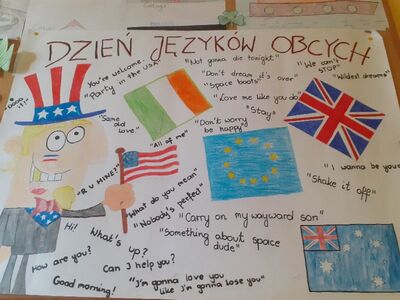 DZIEŃ JĘZYKÓW OBCYCH
"You're welcome."
"Party in the USA"
"Not gonna die tonight"
"Don't dream it's over"
"Space bound"
"We can't
STOP"
"Wildest dreams"
"Love me like you do"
"Stay"
"Same
old
love"
"All of me"
"Don't worry
be happy"
"R U MINE?"
"What do you mean"
"Nobody's perfect"
"I wanna be your
"Shake it off"
"Carry on my wayward son"
"Something about space
dude"
Hi!
What's
up?
How are you?
Can I help you?
Good morning!
"I'm gonna love you
like I'm gonna lose you"